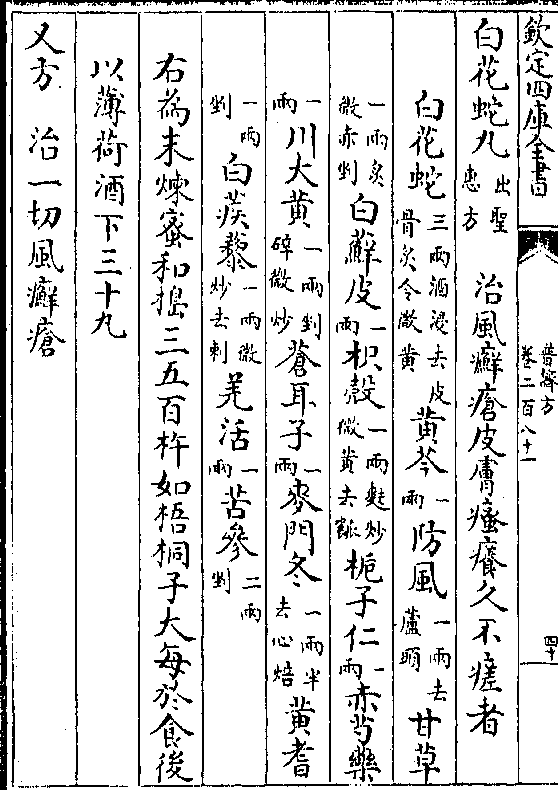 欽定四庫全書
普濟方
卷二百八十一
四十
白花蛇丸出聖惠方　治風癬瘡皮膚瘙癢久不瘥者
白花蛇三兩酒浸去皮骨炙令微黄　黄芩一兩　防風一兩去蘆頭　甘草
一兩炙微赤剉　白蘚皮一兩　枳殼一兩麩炒微黄去瓤　梔子仁一兩　赤芍藥
一兩　川大黄一兩剉碎微炒　蒼耳子一兩　麥門冬一兩半去心焙　黄耆
一兩剉　白蒺藜一兩微炒去刺　羌活一兩　苦參二兩剉
右為末煉蜜和搗三五百杵如梧桐子大每於食後
以薄荷酒下三十丸
又方　治一切風癬瘡